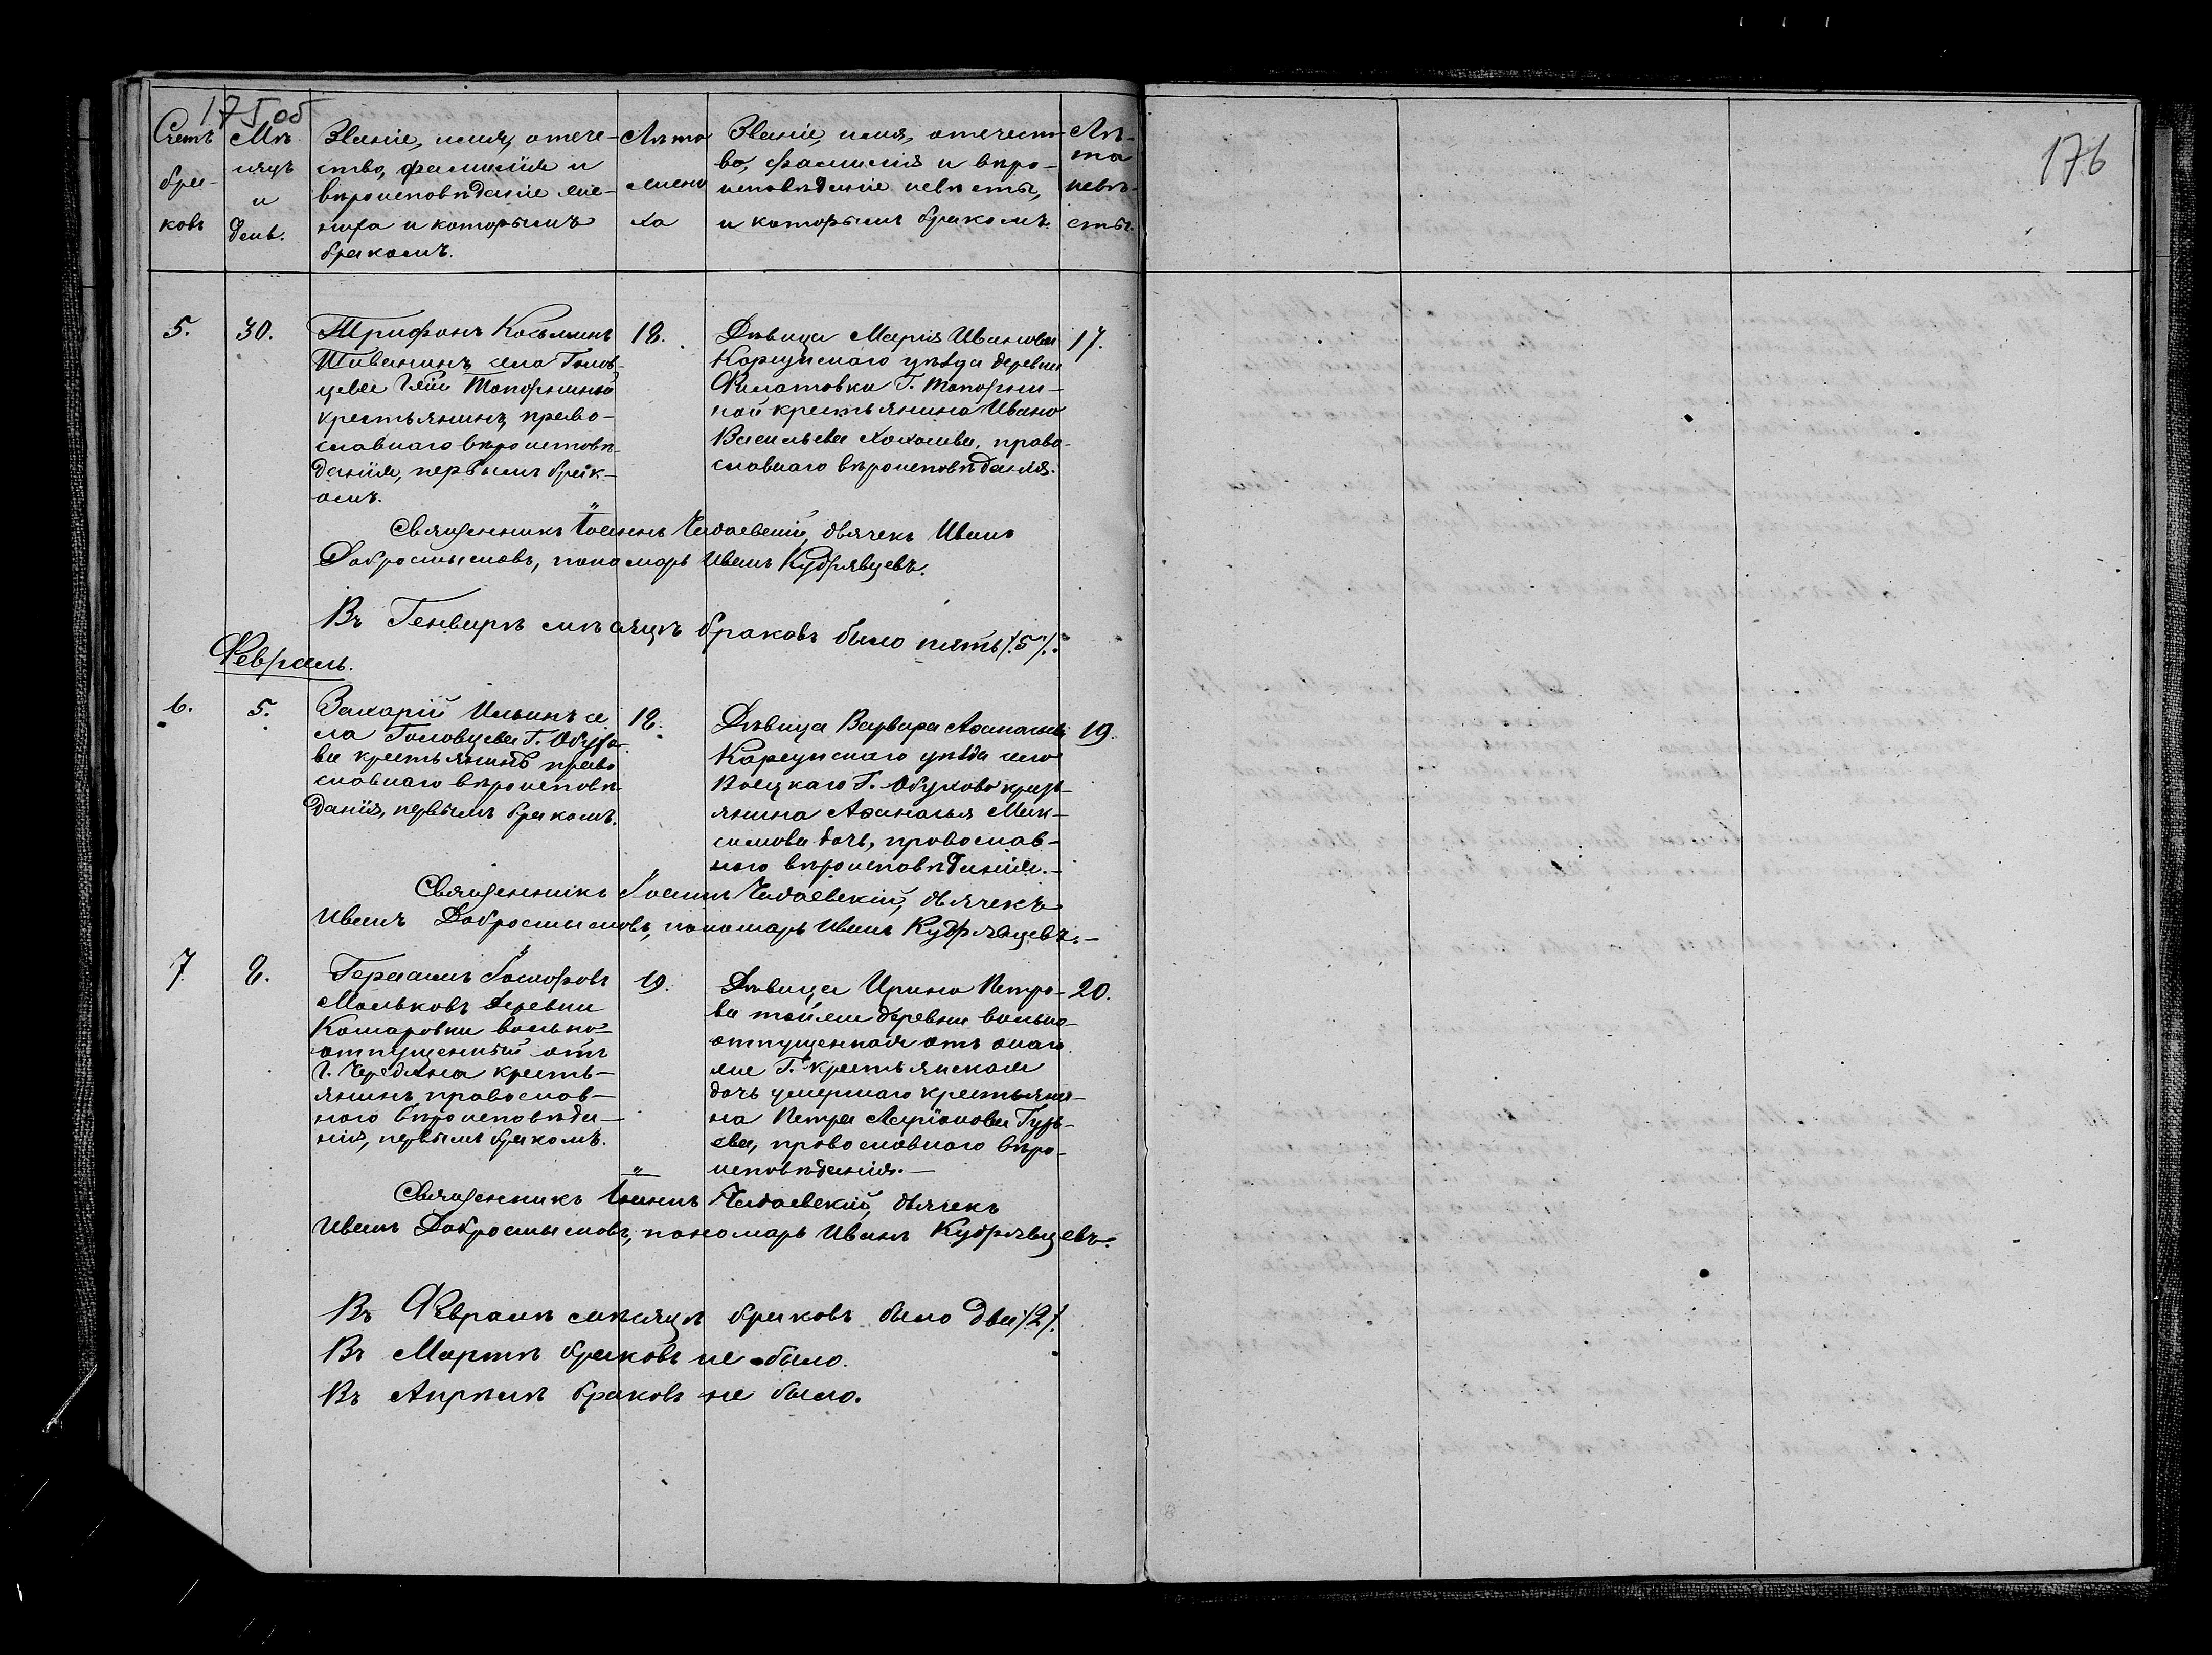 175 об
176
Счетъ бра- ковъ
Мѣ- сяцъ и день.
Званіе, имя, отече-
ство, фамилія и
вѣроисповѣданіе же-
ниха и которымъ
бракомъ.
Лѣта жени ха
Званіе, имя, отечест-
во, фамилія и вѣро-
исповѣданіе невѣсты,
и которымъ бракомъ.
Лѣ- та невѣ- сты.
5. 30.
Трифонъ Козьминъ
села Голов-
цева Топорниной
крестьянинъ, право-
славнаго вѣроисповѣ-
данія, первымъ брак-
омъ.
18.
Дѣвица Марія Иванова
Карсунскаго уѣзда деревни
Филатовки Г. Топорни-
ной крестьянина Ивана
Васильева православнаго вѣроисповѣданія.
17.
Священникъ Іоаннъ Чадаевскій, дьячекъ Иванъ
Добросмысловъ, пономарь Иванъ Кудрявцевъ.
Въ Генварѣ мѣсяцѣ браковъ было пять /:5:/.
Февраль.
6. 5.
Захарій Ильинъ се
ла Головцева Г. Обухо-
ва крестьянинъ право
славнаго вѣроисповѣ-
данія, первымъ бракомъ.
18.
Дѣвица Варвара Афанасьева
Карсунскаго уѣзда села
Воецкаго Г. Обухова кресть-
янина Афанасья Мак-
симова дочь, православ-
наго вѣроисповѣданія.-
19.
Священникъ Іоаннъ Чадаевскій, дьячекъ
Иванъ Добросмысловъ, пономарь Иванъ Кудрявцевъ.-
7 8.
Германъ
Мальковъ деревни
Комаровки вольно-
отпущенный отъ
Г. кресть-
янинъ православ-
наго вѣроисповѣда-
нія, первымъ бракомъ.
19.
Дѣвица Ирина Петро-
ва той же деревни вольно-
отпущенная отъ онаго
же Г. крестьянская
дочь умершаго крестьяни-
на Петра Ларіонова Гурь-
ева, православнаго вѣро-
исповѣданія.-
20.
Священникъ Іоаннъ Чадаевскій, дьячекъ
Иванъ Добросмысловъ, пономарь Иванъ Кудрявцевъ.
Въ Февралѣ мѣсяцѣ браковъ было два /:2:/.
Въ Мартѣ браковъ не было.
Въ Апрѣлѣ браковъ не было.